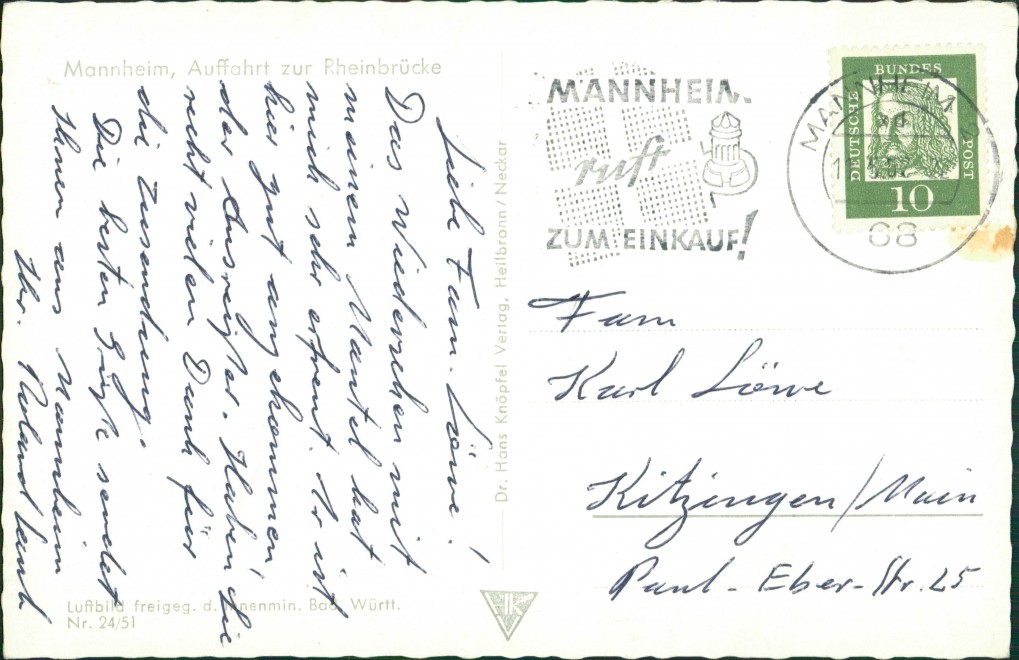 Mannheim, Auffahrt zur Rheinbrücke
Liebe Fam. Löwe!
Das Wiedersehen mit
meinem Mantel hat
mich sehr erfreut. Er ist
hier gut angekommen
der Ausreißer. Haben Sie
recht vielen Dank für
die Zusendung.
Die besten Grüße sendet
Ihnen aus Mannheim
Ihr Roland
Luftbild freigeg. d. Innenmin. Bad. Württ.
Nr. 24/51
Dr. Hans Knöpfel Verlag, Heilbronn/Neckar
HK
MANNHEIM
ruft
ZUM EINKAUF!
MANNHEIM
68
DEUTSCHE
BUNDES
POST
10
Fam
Karl Löwe
Kitzingen/Main
Paul-Eber-Str. 25